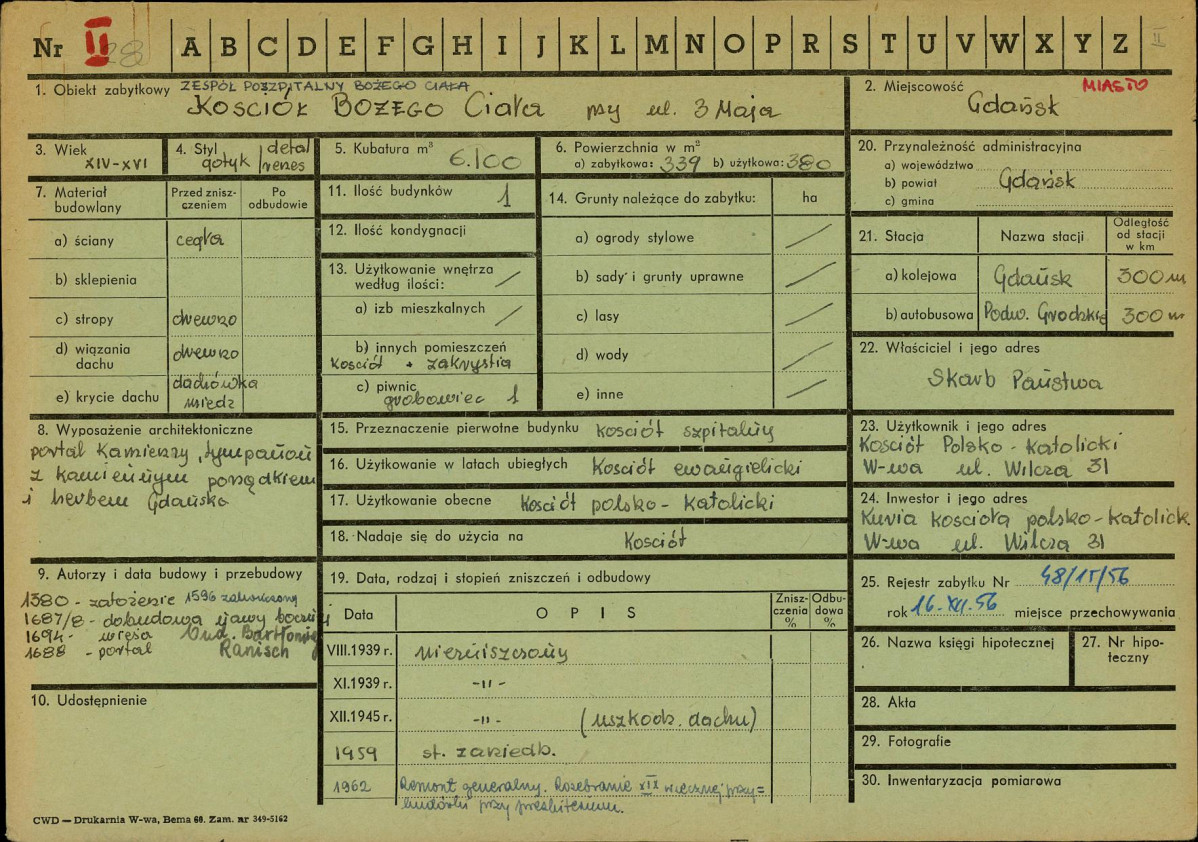 Nr II 28 A B C D E F G H I J K L M N O P R S T U V W X Y Z II
1. Obiekt zabytkowy ZESPÓŁ POSZPITALNY BOŻEGO CIAŁA
KOSCIÓŁ BOŻEGO Ciała przy ul. 3 Maja
2. Miejscowość MIASTO
Gdańsk
3. Wiek
XIV-XVI
4. Styl detal
gotyk renes
5. Kubatura m³ 6.100
6. Powierzchnia w m²
a) zabytkowa: 339 b) użytkowa: 380
20. Przynależność administracyjna
a) województwo
b) powiat Gdańsk
c) gmina
7. Materiał budowlany
Przed zniszczeniem
Po odbudowie
a) ściany cegła
b) sklepienia
c) stropy drewno
d) wiązania dachu drewno
e) krycie dachu dachówka miedz
11. Ilość budynków 1
12. Ilość kondygnacji
13. Użytkowanie wnętrza
według ilości:
a) izb mieszkalnych
b) innych pomieszczeń
kościół + zakrystia
c) piwnic
grobowiec 1
14. Grunty należące do zabytku: ha
a) ogrody stylowe
b) sady i grunty uprawne
c) lasy
d) wody
e) inne
21. Stacja Nazwa stacji Odległość od stacji w km
a) kolejowa Gdańsk 300 m
b) autobusowa Podw. Grodzkie 300 m
22. Właściciel i jego adres
Skarb Państwa
8. Wyposażenie architektoniczne
portal kamienny, tympanon
z kamiennym porządkiem
i herbem Gdańska
15. Przeznaczenie pierwotne budynku kościół szpitalny
16. Użytkowanie w latach ubiegłych kościół ewangielicki
17. Użytkowanie obecne kościół polsko-katolicki
18. Nadaje się do użycia na kościół
23. Użytkownik i jego adres
Kościół Polsko-katolicki
W-wa ul. Wilcza 31
24. Inwestor i jego adres
Kuria kościoła polsko-katolick.
W-wa ul. Wilcza 31
9. Autorzy i data budowy i przebudowy
1380 - założenie 1596 zakończono
1687/8 - dobudowa nawy bocznej
1694 - wieża bud. Bartłomiej
1688 - portal Ranisch
10. Udostępnienie
19. Data, rodzaj i stopień zniszczeń i odbudowy
Data OPIS Zniszczenia % Odbudowa %
VIII.1939 r. niezniszczony
XI.1939 r. -"-
XII.1945 r. -"- (uszkodz. dachu)
1959 st. zaniedb.
1962 Remont generalny. Rozebranie XIX wiecznej przy=
budówki przy presbiterium.
25. Rejestr zabytku Nr 48/15/56
rok 16.XII.56 miejsce przechowywania
26. Nazwa księgi hipotecznej
27. Nr hipoteczny
28. Akta
29. Fotografie
30. Inwentaryzacja pomiarowa
CWD — Drukarnia W-wa, Bema 60. Zam. nr 349-5162